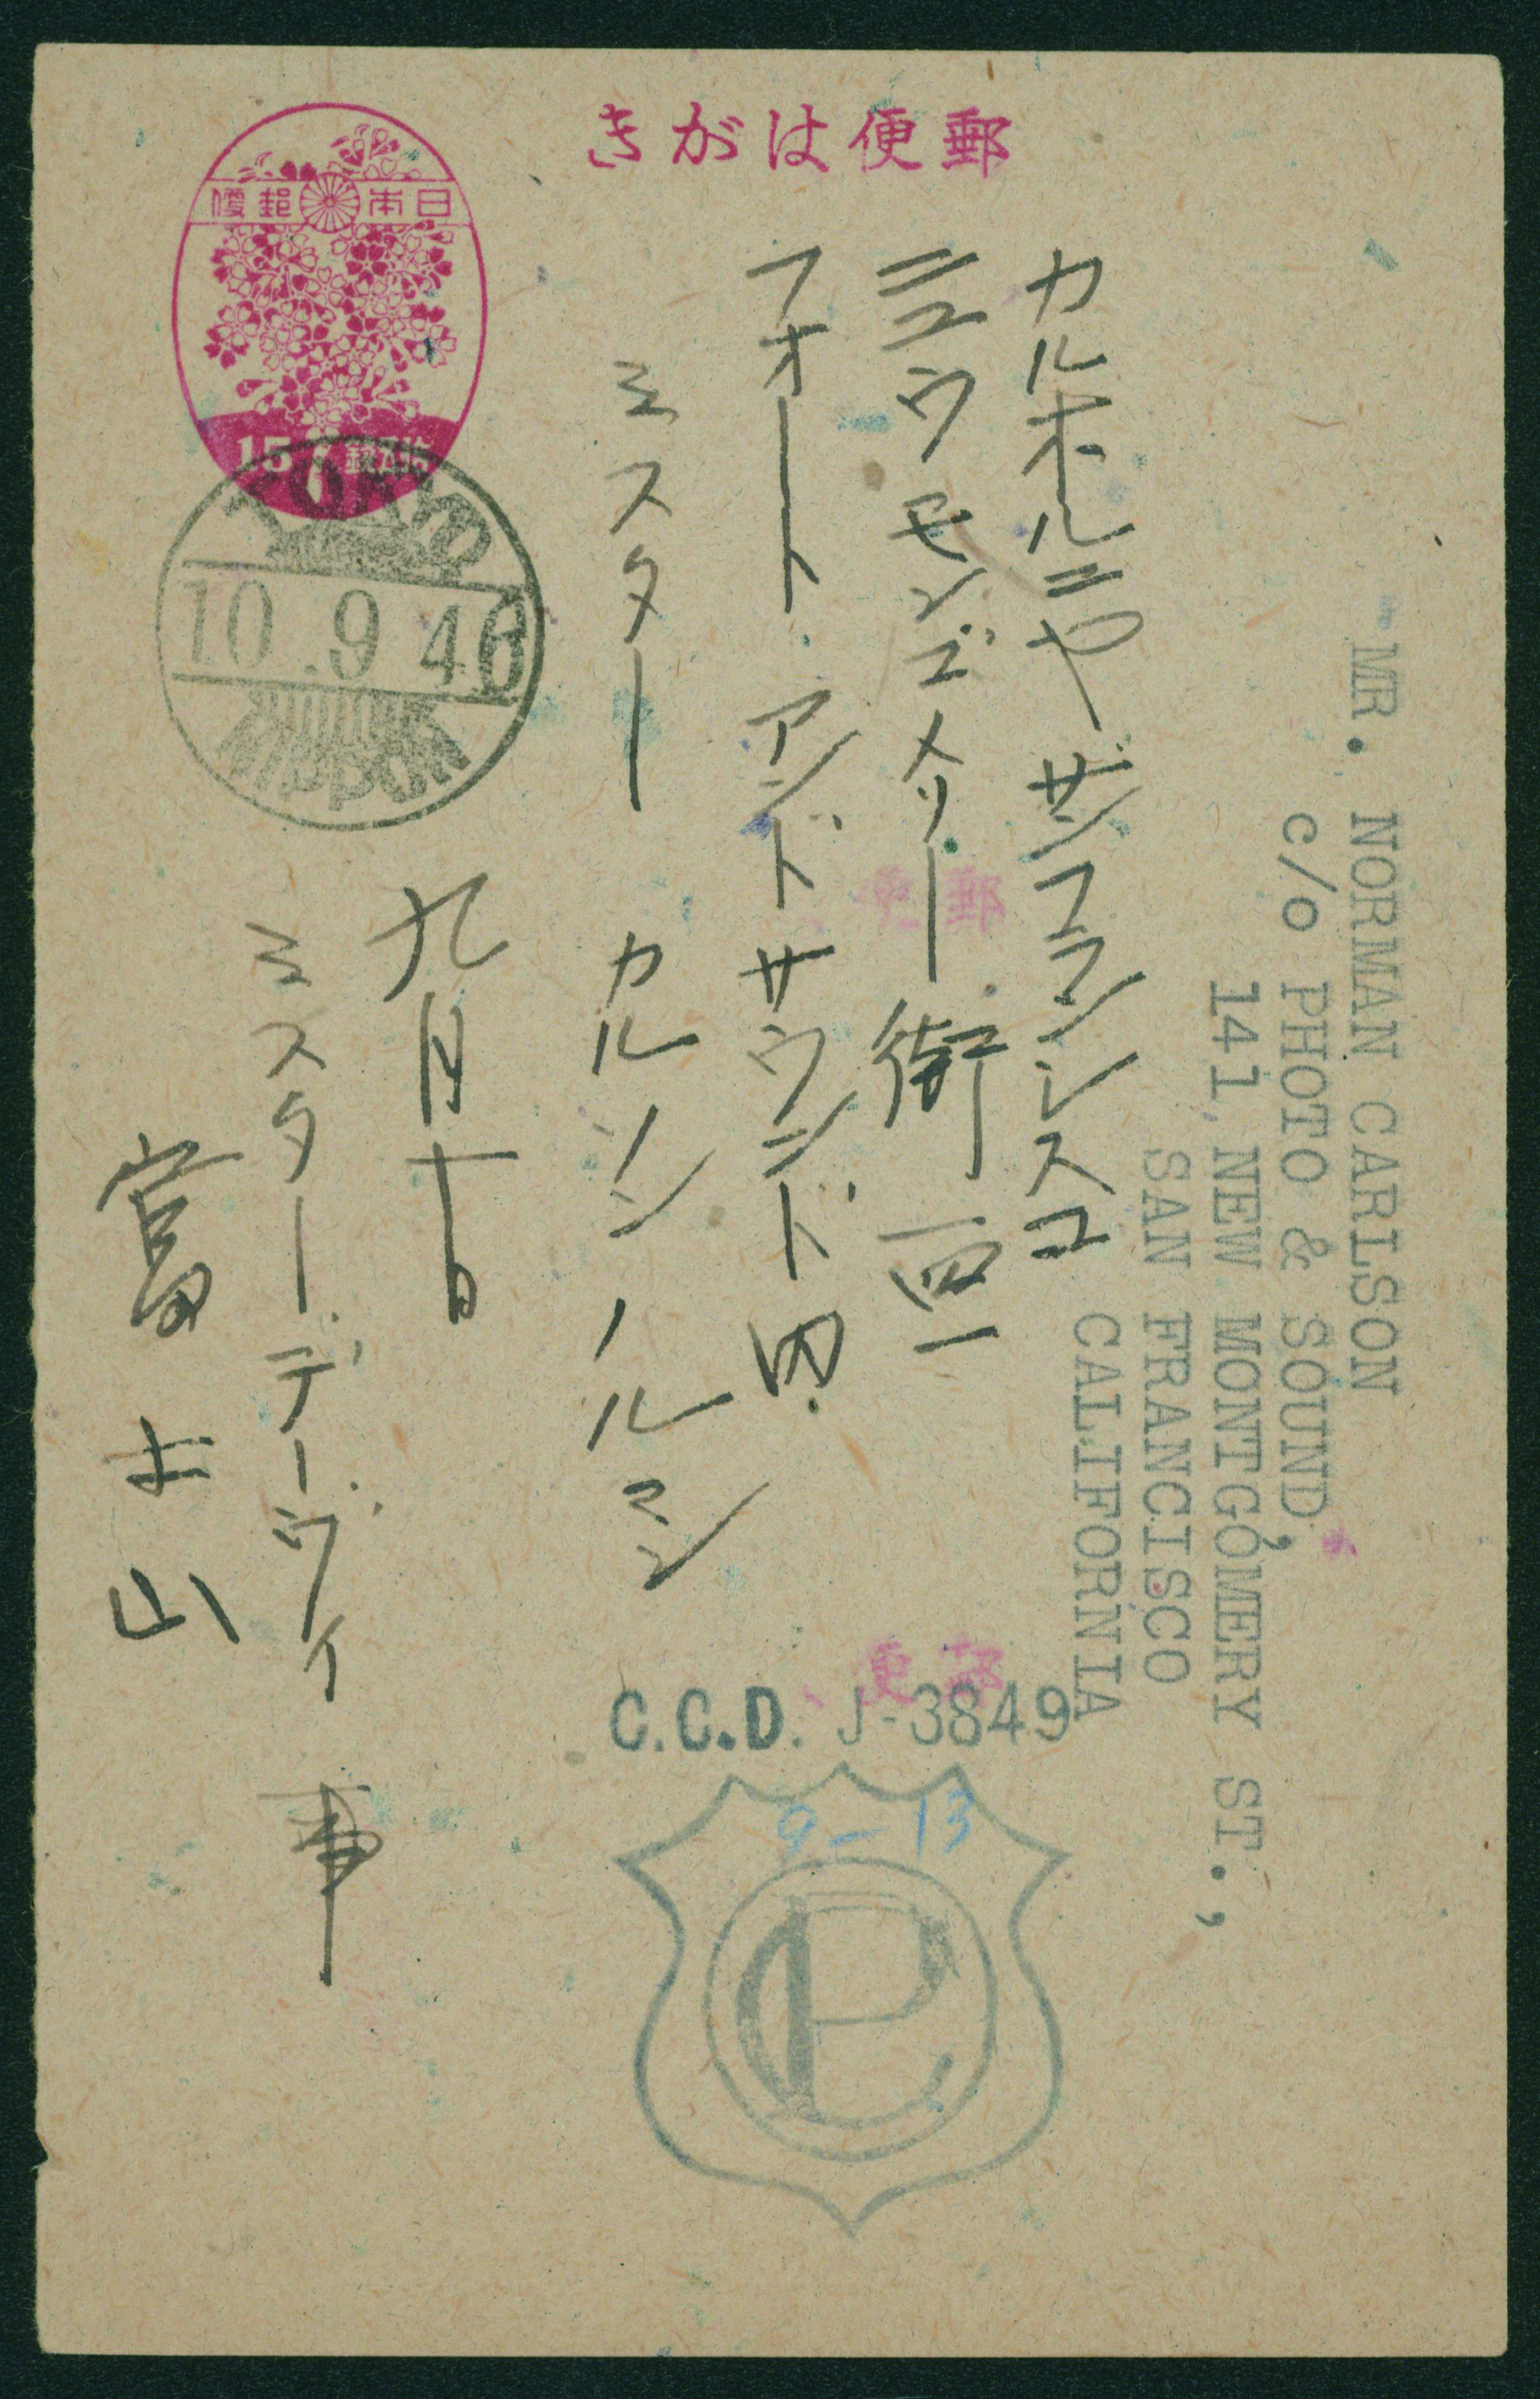 郵便はがき
日本郵便
15 拾五銭
TOKYO
10.9.46
NIPPON
MR. NORMAN CARLSON
c/o PHOTO & SOUND,
141, NEW MONTGOMERY ST.,
SAN FRANCISCO
CALIFORNIA
カルホルニヤ サンフランシスコ
ニユウ モンゴメリー街 一四一
フオート アンド サウンド内
ミスター カルソン ノルマン
九月十日
ミスター デーヴィ
富士山
郵便
郵便
C.C.D. J-3849
9-13
CP